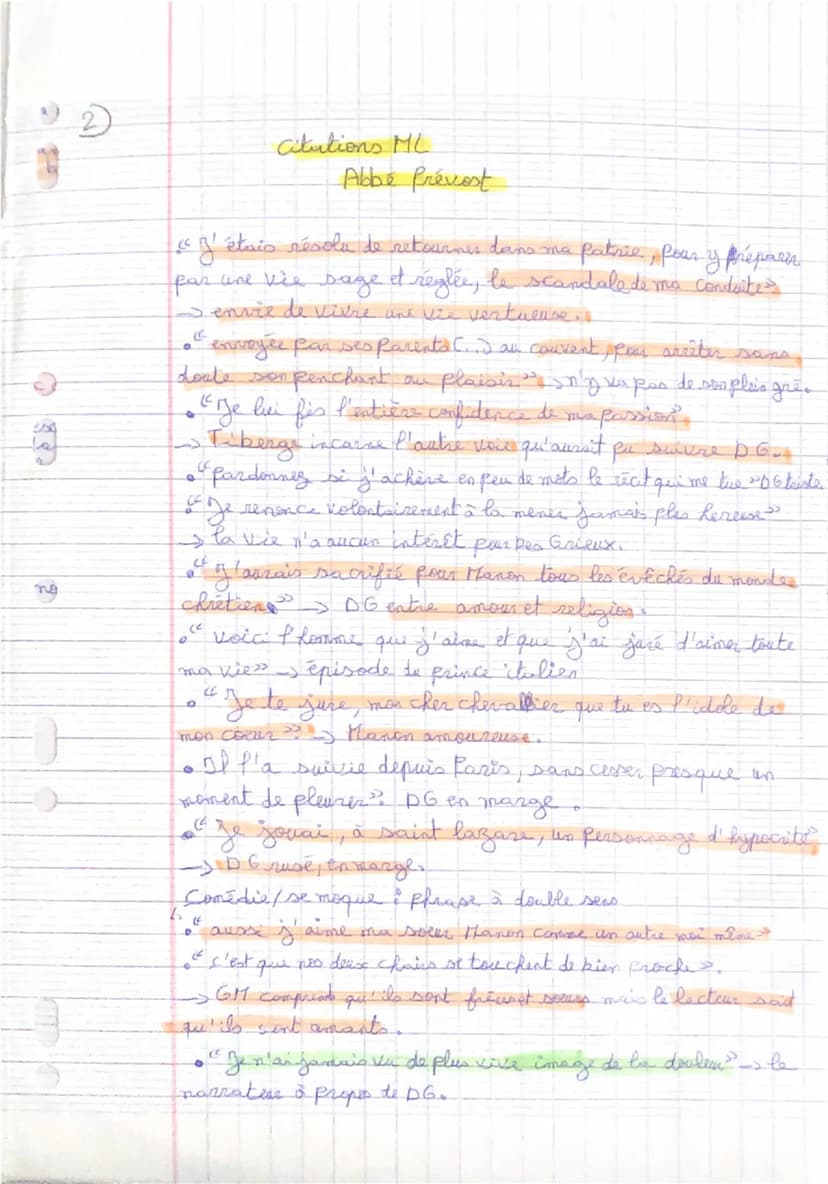 2)
Citations ML
Abbé Prévost
"J'étais résolu de retourner dans ma patrie, pour y préparer
par une vie sage et réglée, le scandale de ma conduite"
→ envie de vivre une vie vertueuse.
• "envoyée par ses parents (...) au couvent, pour arrêter sans
doute son penchant au plaisir" → n'y va pas de son plein gré.
• "Je lui fis l'entière confidence de ma passion"
→ Tiberge incarne l'autre voie qu'aurait pu suivre DG.
• "pardonnez si j'achève en peu de mots le récit qui me tue" DG triste
• "Je renonce volontairement à la mener jamais plus hereuse"
→ la vie n'a aucun intérêt pour Des Grieux.
• "J'aurais sacrifié pour Manon tous les évêchés du monde
chrétien" → DG entre amour et religion.
• "voici l'homme que j'aime et que j'ai juré d'aimer toute
ma vie" → épisode du prince italien
• "Je te jure, mon cher chevalier que tu es l'idole de
mon coeur" → Manon amoureuse.
• Il l'a suivie depuis Paris, sans cesser presque un
moment de pleurer". DG en marge.
• "Je jouai, à saint lazare, un personnage d'hypocrite"
→ DG rusé, en marge.
Comédie / se moque : phrase à double sens
• "aussi j'aime ma soeur Manon comme un autre moi même"
• "c'est que nos deux chairs se touchent de bien proche".
→ GM comprend qu'ils sont frère et soeurs mais le lecteur sait
qu'ils sont amants.
• "Je n'ai jamais vu de plus vive image de la douleur" → le
narrateur à propos de DG.